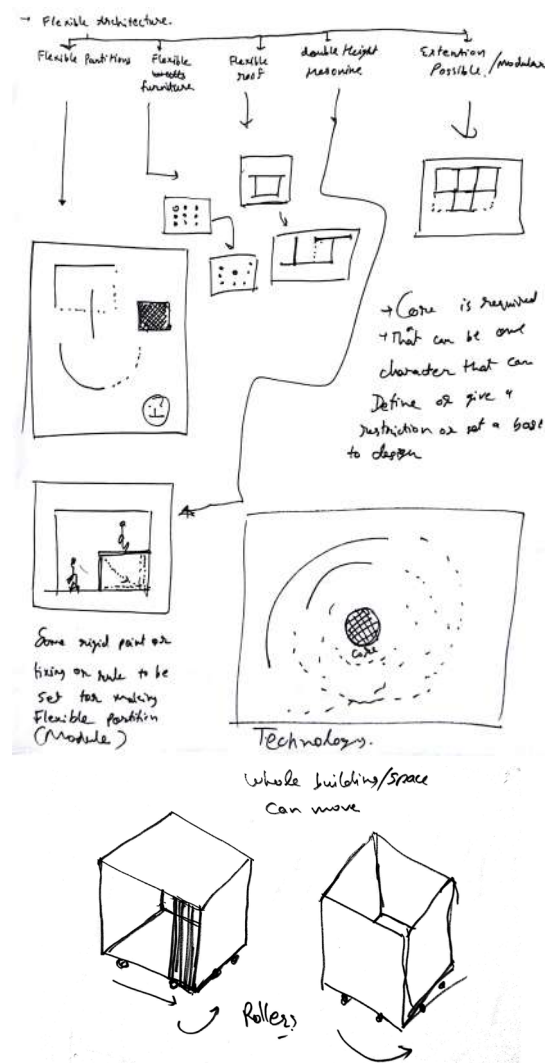 → Flexible Architecture.
Flexible Partitions
Flexible
furniture
Flexible
roof
double Height
Mezonine
Extention
Possible/modular
→ Core is required
→ That can be one
character that can
Define or give a
restriction or set a base
to design
Some rigid point or
fixing or rule to be
set for making
Flexible partition
(Module)
Core
Technology.
Whole building/space
can move
Rollers